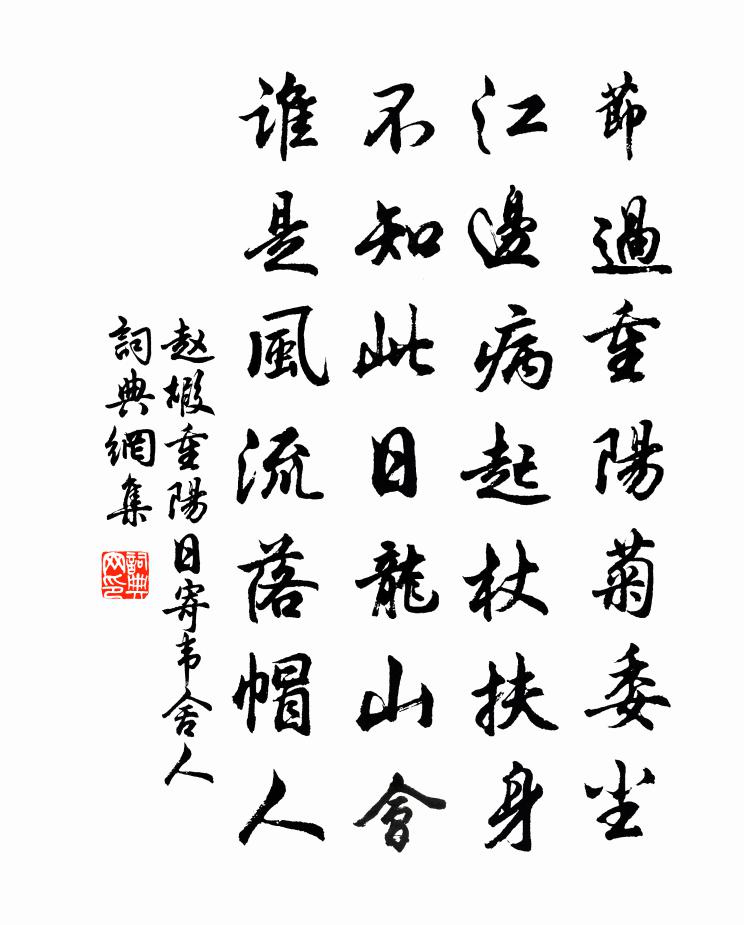 節過重陽菊委尘
江邊病起杖扶身
不知此日龍山會
誰是風流落帽人
赵嘏重陽日寄韦舍人
詞典網集
詞典网印